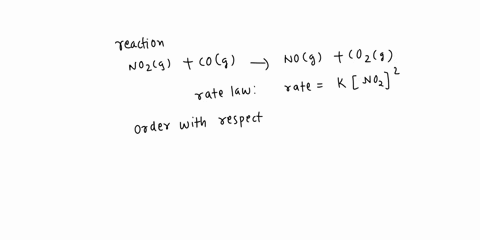 reaction
NO2(g) + CO(g) → NO(g) + CO2(g)
rate law: rate = K [NO2]^2
Order with respect